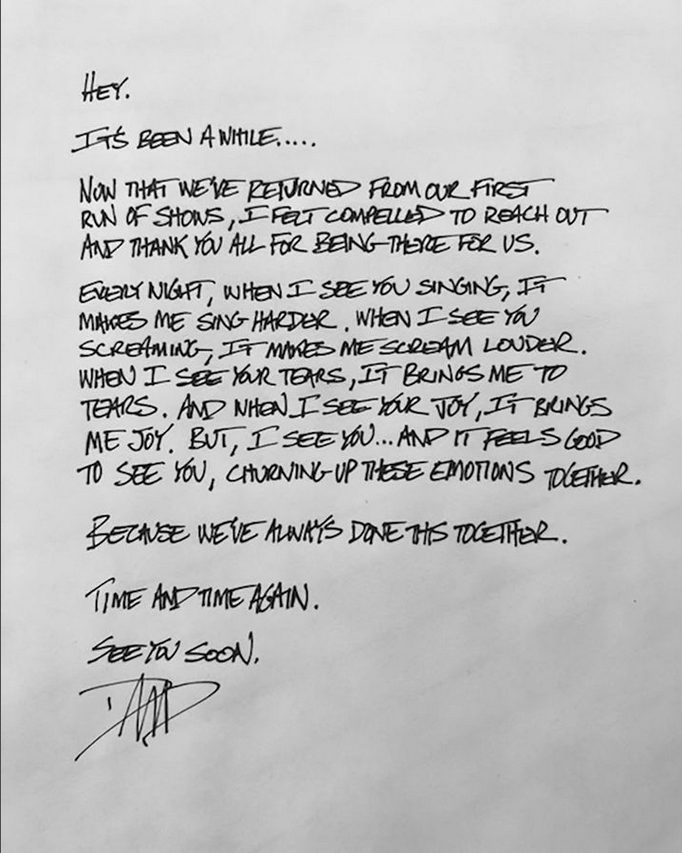 HEY.
IT'S BEEN A WHILE.....
NOW THAT WE'VE RETURNED FROM OUR FIRST
RUN OF SHOWS, I FELT COMPELLED TO REACH OUT
AND THANK YOU ALL FOR BEING THERE FOR US.
EVERY NIGHT, WHEN I SEE YOU SINGING, IT
MAKES ME SING HARDER. WHEN I SEE YOU
SCREAMING, IT MAKES ME SCREAM LOUDER.
WHEN I SEE YOUR TEARS, IT BRINGS ME TO
TEARS. AND WHEN I SEE YOUR JOY, IT BRINGS
ME JOY. BUT, I SEE YOU... AND IT FEELS GOOD
TO SEE YOU, CHURNING UP THESE EMOTIONS TOGETHER.
BECAUSE WE'VE ALWAYS DONE THIS TOGETHER.
TIME AND TIME AGAIN.
SEE YOU SOON.